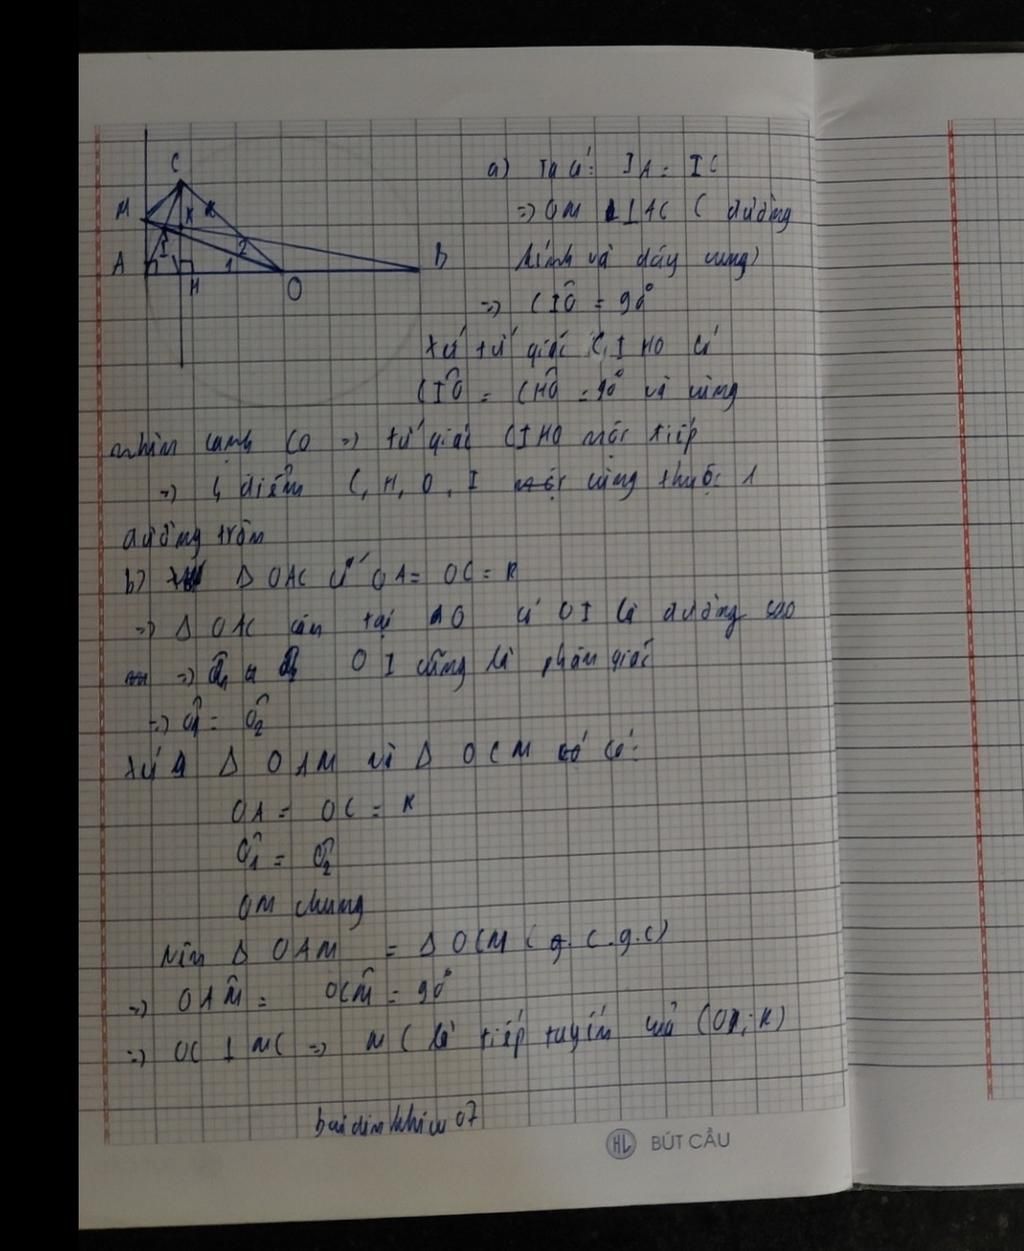 C
M
K
I
2
A
1
B
H
O
a) Ta có: IA = IC
=> OM ⊥ AC ( đường
kính và dây cung)
=> CIO = 90°
Xét tứ giác CIHO có
CIO = CHO = 90° và cùng
nhìn cạnh CO => tứ giác CIHO nội tiếp
=> 4 điểm C, H, O, I cùng thuộc 1
đường tròn
b) Δ OAC có OA = OC = R
=> Δ OAC cân tại O có OI là đường cao
=> OI cũng là phân giác
=> O1 = O2
Xét Δ OAM và Δ OCM có:
OA = OC = R
O1 = O2
OM chung
Nên Δ OAM = Δ OCM ( g.c.g.c)
=> OAM = OCM = 90°
=> OC ⊥ MC => MC là tiếp tuyến của (O; R)
HL BÚT CẦU